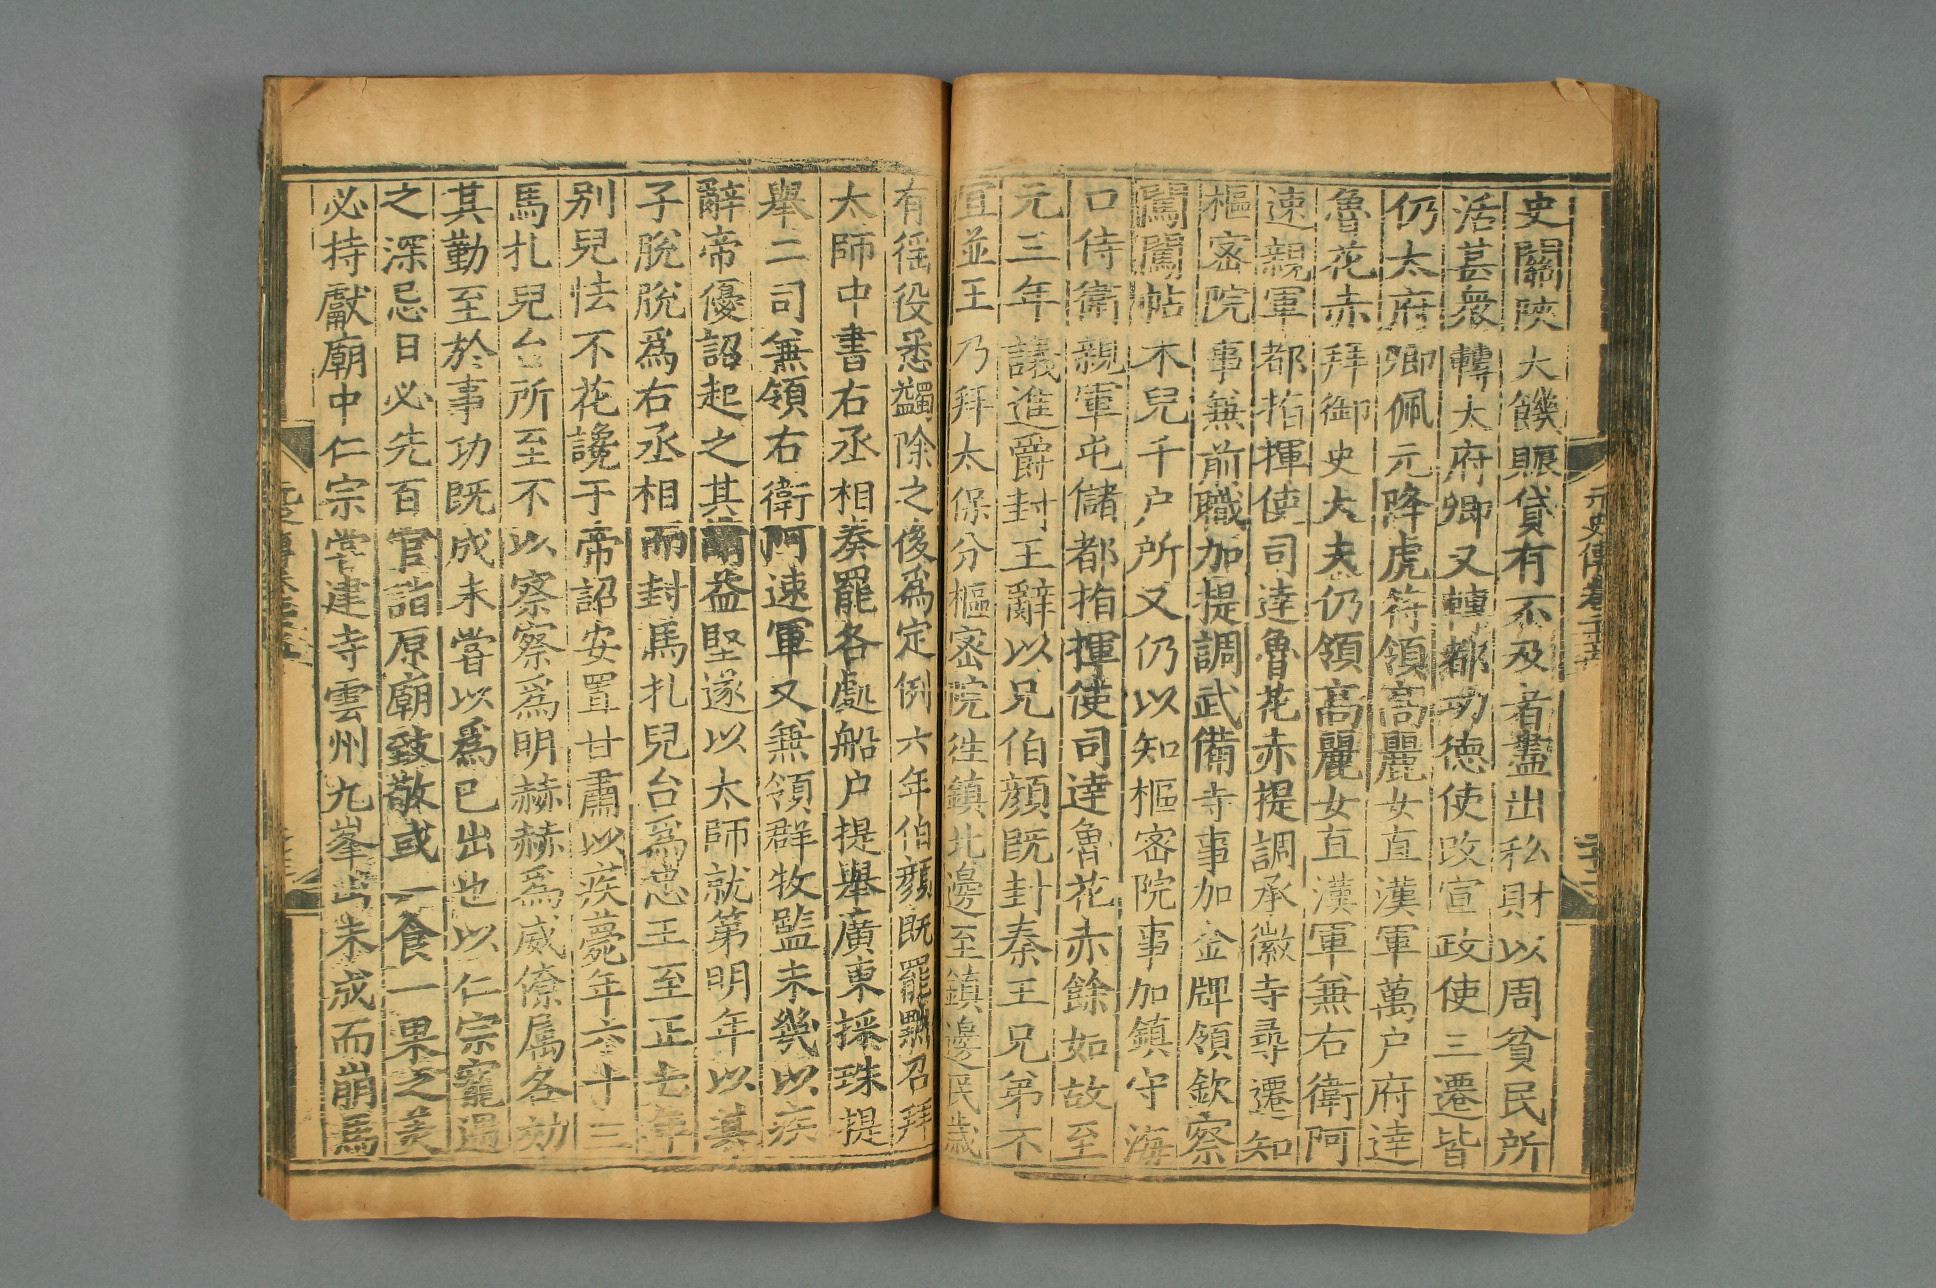 史關陝大饑賑貸有不及者盡出私財以周貧民所
活甚衆轉太府卿又轉都功德使改宣政使三遷皆
仍太府卿佩元降虎符領高麗女直漢軍萬户府達
魯花赤拜御史大夫仍領高麗女直漢軍兼右衛阿
速親軍都指揮使司達魯花赤提調承徽寺尋遷知
樞密院事兼前職加提調武備寺事加金牌領欽察
闊闊帖木兒千户所又仍以知樞密院事加鎮守海
口侍衛親軍屯儲都指揮使司達魯花赤餘如故至
元三年議進爵封王辭以兄伯顔既封秦王兄弟不
宜並王乃拜太保分樞密院往鎮北邊至鎮邊民歲
有徭役悉蠲除之後爲定例六年伯顔既罷黜召拜
太師中書右丞相奏罷各處船户提舉廣東採珠提
舉二司兼領右衛阿速軍又兼領群牧監未幾以疾
辭帝優詔起之其請益堅遂以太師就第明年以其
子脫脫爲右丞相而封馬扎兒台爲忠王至正七年
别兒怯不花讒于帝詔安置甘肅以疾薨年六十三
馬扎兒台所至不以察察爲明赫赫爲威僚屬各効
其勤至於事功既成未嘗以爲已出也以仁宗寵遇
之深忌日必先百官詣原廟致敬或一食一果之美
必持獻廟中仁宗嘗建寺雲州九峯山未成而崩馬
元史傳卷二十五